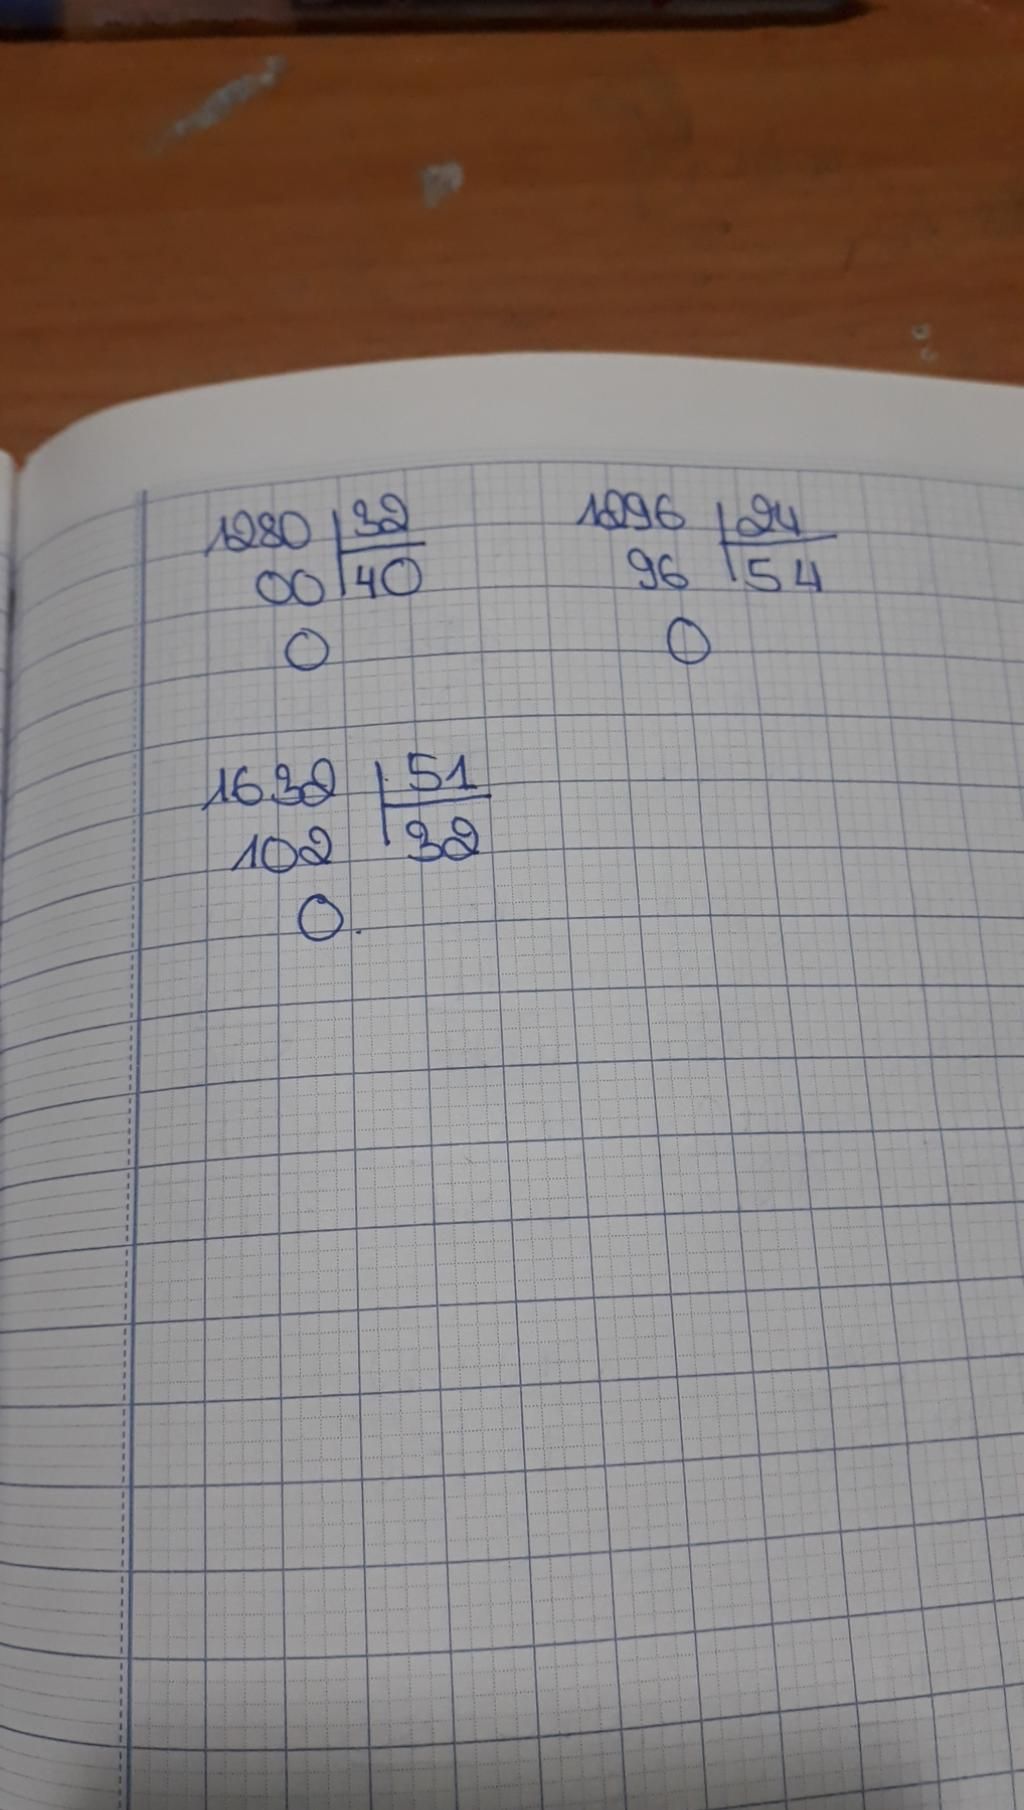 1280 32
00 40
0
1296 24
96 54
0
1632 51
102 32
0.